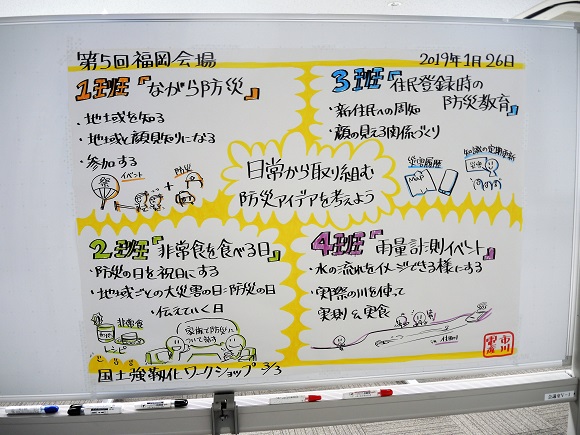 第5回福岡会場
2019年1月26日
1班『ながら防災』
・地域を知る
・地域と顔見知りになる
・参加する
イベント
防災
祭
+
3班『住民登録時の
防災教育』
・新住民への周知
・顔の見える関係づくり
災害履歴
MAP
知識の定期更新
日常から取り組む
防災アイデアを考えよう
2班『非常食を食べる日』
・防災の日を祝日にする
・地域ごとの大災害の日:防災の日
伝えていく日
非常食
レシピ
家族で防災に
ついて話す
4班『雨量計測イベント』
・水の流れをイメージできる様にする
・実際の川を使って
実測&実食
国土強靭化ワークショップ 3/3